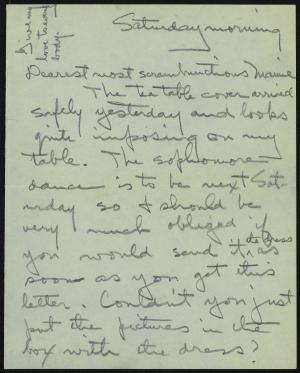 Give my
love to every
body.
Saturday morning
Dearest most scrambunctious Mamie
The tea table cover arrived
safely yesterday and looks
quite imposing on my
table. The sophomore
dance is to be next Sat-
urday so I should be
very much obliged if
you would send it, the dress as
soon as you get this
letter. Couldn't you just
put the pictures in the
box with the dress?